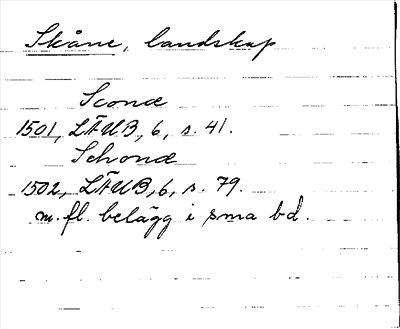 Skåne, landskap
Sconæ
1501, LÄUB, 6, s. 41.
Schonæ
1502, LÄUB, 6, s. 79.
m. fl. belägg i sma bd.